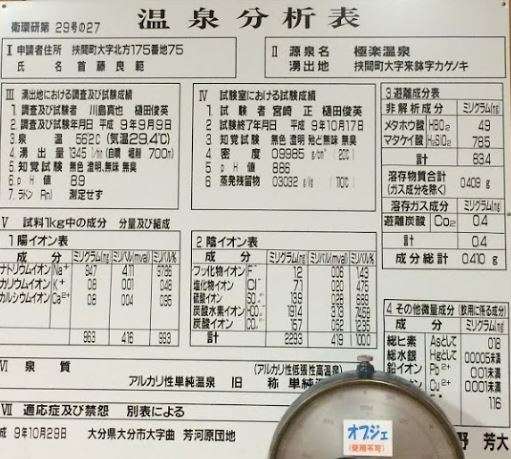 衛環研第 29号の27
温泉分析表
I 申請者住所 挾間町大字北方175番地75
氏名 首藤良範
II 源泉名 極楽温泉
湧出地 挾間町大字来鉢字カゲノキ
III 湧出地における調査及び試験成績
1 調査及び試験者 川島眞也 樋田俊英
2 調査及び試験年月日 平成 9年9月9日
3 泉温 56.2℃ (気温29.4℃)
4 湧出量 134.5 l/min (自噴 堀削 700m)
5 知覚試験 無色 澄明, 無味 無臭
6 pH値 8.9
7 ラドン(Rn) 測定せず
IV 試験室における試験成績
1 試験者 宮崎 正 樋田俊英
2 試験終了年月日 平成 9年10月17日
3 知覚試験 無色 澄明 殆ど無味 無臭
4 密度 0.9985 g/cm³ (20℃)
5 pH値 8.86
6 蒸発残留物 0.3032 g/kg (110℃)
3 遊離成分表
非解析成分 ミリグラム(mg)
メタホウ酸 HBO₂ 4.9
メタケイ酸 H₂SiO₃ 78.5
計 83.4
溶存物質合計 (ガス成分を除く) 0.409 g
溶存ガス成分 ミリグラム(mg)
遊離炭酸 CO₂ 0.4
計 0.4
成分総計 0.410 g
V 試料1kg中の成分 分量及び組成
1 陽イオン表
成分 ミリグラム(mg) ミリバル(mval) ミリバル%
ナトリウムイオン Na⁺ 94.7 4.11
カリウムイオン K⁺ 0.8 0.01 0.48
カルシウムイオン Ca²⁺ 0.8 0.04
計 4.16
2 陰イオン表
成分 ミリグラム(mg) ミリバル(mval) ミリバル%
フッ化物イオン F⁻ 1.2 0.06 1.43
塩化物イオン Cl⁻ 7.1 0.20 4.75
硫酸イオン SO₄²⁻ 13.9
炭酸水素イオン HCO₃⁻ 3.13
炭酸イオン CO₃²⁻ 0.52
計 229.3 4.19 100.0
4 その他微量成分 (飲用に係る成分)
成分 ミリグラム(mg)
総ヒ素 Asとして
総水銀 Hgとして 0.0005未満
鉛イオン Pb²⁺ 未満
VI 泉質
(アルカリ性低張性高温泉)
アルカリ性単純温泉 旧称 単純
VII 適応症及び禁忌 別表による
成 9年10月29日 大分県大分市大字曲 芳河原団地
野 芳大
オブジェ
(使用不可)